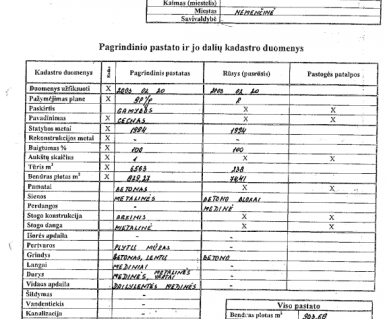 Kaimas (miestelis)
Miestas NEMENČINĖ
Savivaldybė
Pagrindinio pastato ir jo dalių kadastro duomenys
Kadastro duomenys Kodas Pagrindinis pastatas Rūsys (pusrūsis) Pastogės patalpos
Duomenys užfiksuoti X 2003 02 20 2003 02 20
Pažymėjimas plane X
Paskirtis X GAMYBOS X X
Pavadinimas X CECHAS X X
Statybos metai X 1984 1984
Rekonstrukcijos metai X - -
Baigtumas % X 100 100
Aukštų skaičius X 1 X X
Tūris m³ X 6563 238
Bendras plotas m² X
Pamatai BETONAS X X
Sienos METALINĖS BETONO BLOKAI
Perdangos - MEDINĖ
Stogo konstrukcija X X
Stogo danga METALINĖ X X
Išorės apdaila - -
Pertvaros PLYTŲ MŪRAS -
Grindys BETONAS, LENTŲ BETONO
Langai MEDINIAI -
Durys MEDINĖS, METALINĖS VARTAI -
Vidaus apdaila DAILYLENTĖS MEDINĖS -
Šildymas - -
Vandentiekis -
Kanalizacija -
Viso pastato
Bendras plotas m² 903.68